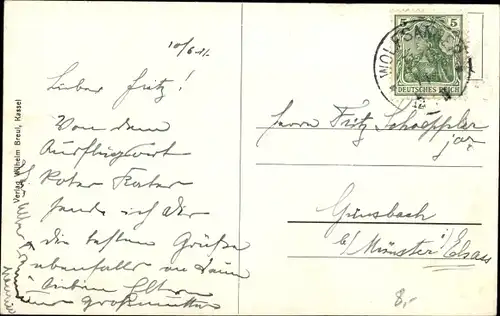 10/6 12.
Lieber Fritz!
Von dem
Ausflugsort
Roter Kater
sende ich Dir
die besten Grüße
ebenfalls an Deine
lieben Eltern
Großmutter
Verlag Wilhelm Breul, Kassel
5 5
DEUTSCHES REICH
Herrn Fritz Schoeppler
jr.
Günsbach
b/ Münster i/ Elsass
8,-